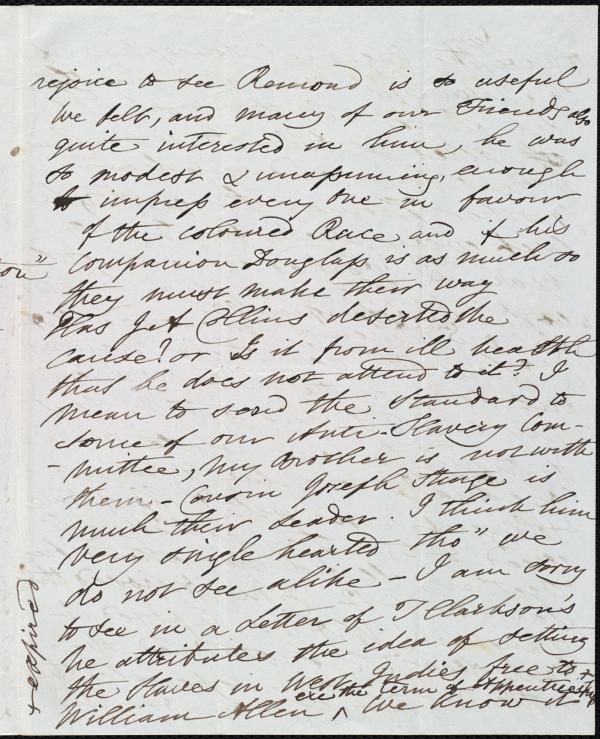 rejoice to see Remond is so useful
we felt, and many of our Friends also
quite interested in him, he was
so modest & unassuming, enough
to impress every one in favour
of the coloured Race and if his
companion Douglass is as much so
they must make their way
Has J A Collins deserted the
cause? or Is it from ill health
that he does not attend to it? I
mean to send the Standard to
some of our Anti-Slavery Com-
-mittee, my Brother is not with
them - Cousin Joseph Sturge is
much their Leader. I think him
very single hearted tho" we
do not see alike - I am sorry
to see in a Letter of T Clarkson's
he attributes the idea of setting
the Slaves in West Indies free to
ere the term of Apprenticeship
William Allen ^ we know it
+ expired
ton"